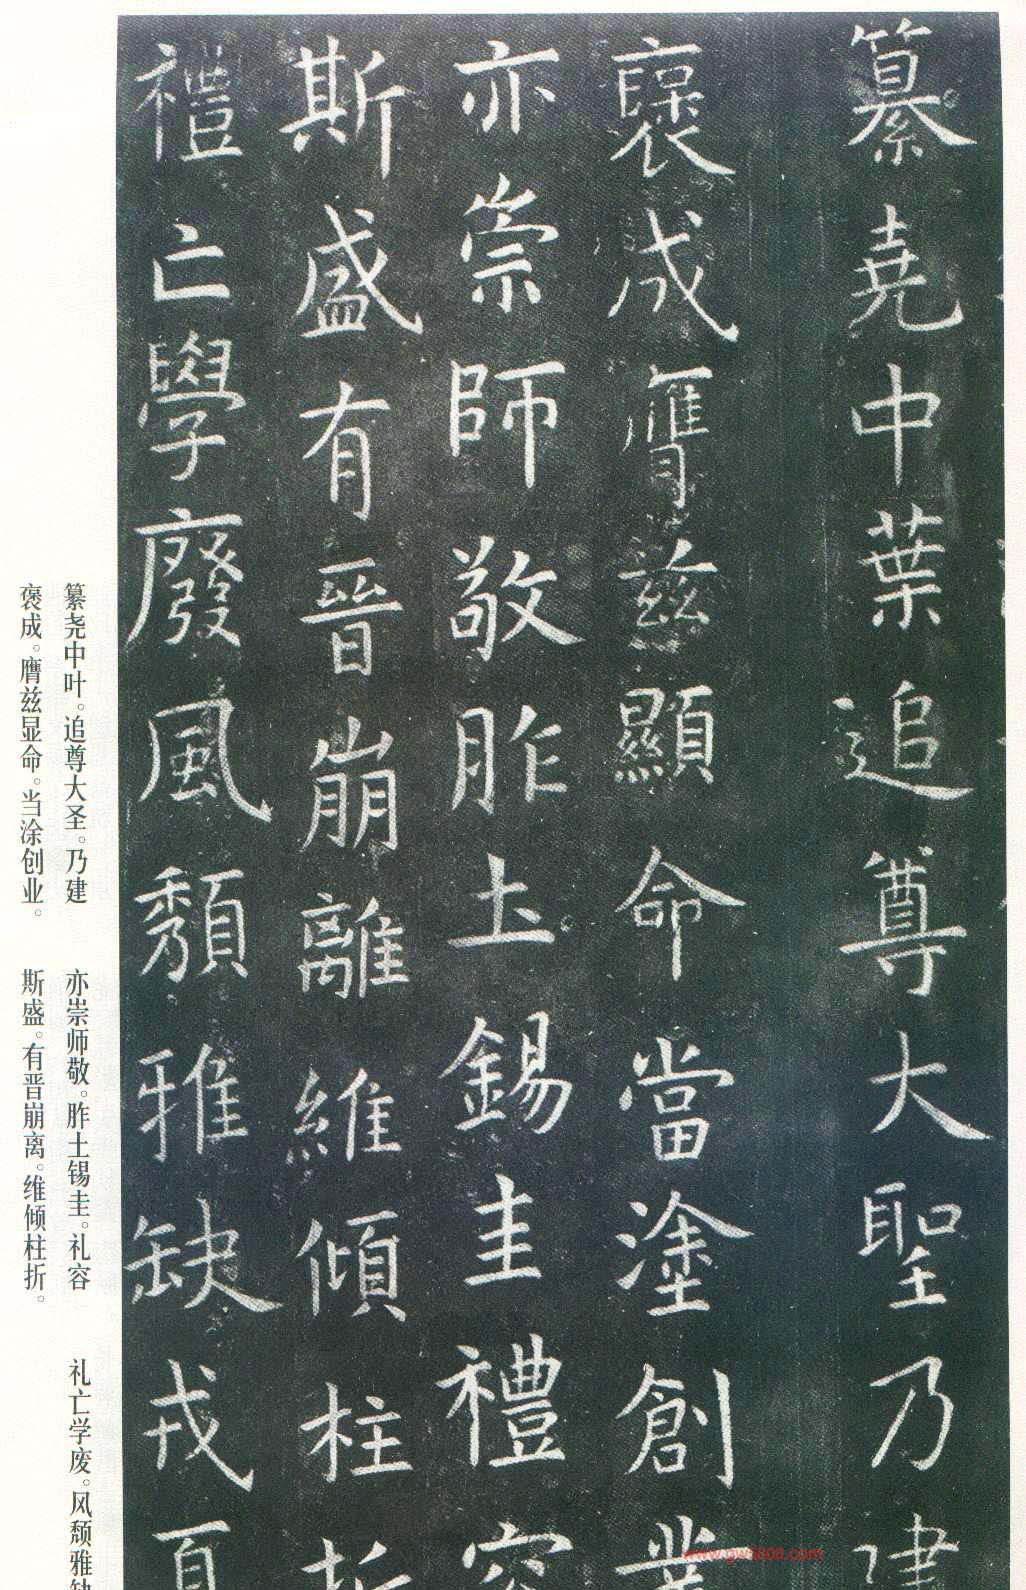 纂堯中葉追尊大聖乃建
褒成膺兹顯命當塗創業
亦崇師敬胙土錫圭禮容
斯盛有晉崩離維傾柱折
禮亡學廢風頹雅缺戎夏
纂尧中叶。追尊大圣。乃建
褒成。膺兹显命。当涂创业。
亦崇师敬。胙土锡圭。礼容
斯盛。有晋崩离。维倾柱折。
礼亡学废。风颓雅缺
www.gw8800.com